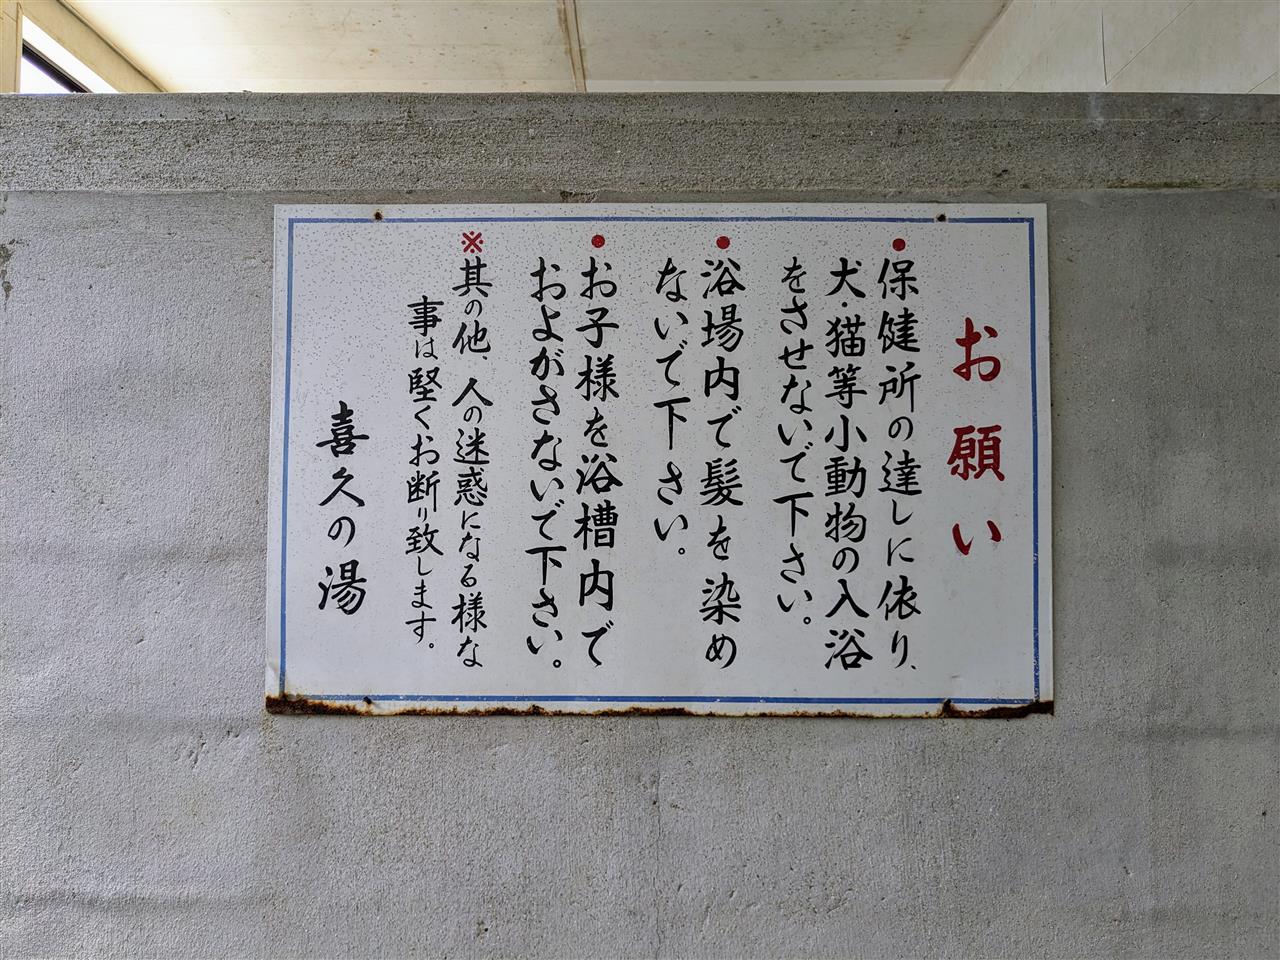 お願い
●保健所の達しに依り、
犬・猫等小動物の入浴
をさせないで下さい。
●浴場内で髪を染め
ないで下さい。
●お子様を浴槽内で
およがさないで下さい。
※其の他、人の迷惑になる様な
事は堅くお断り致します。
喜久の湯